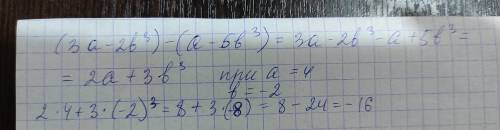 (3a-2b³)-(a-5b³)=3a-2b³-a+5b³=
=2a+3b³ при a=4
b=-2
2·4+3·(-2)³=8+3·(-8)=8-24=-16